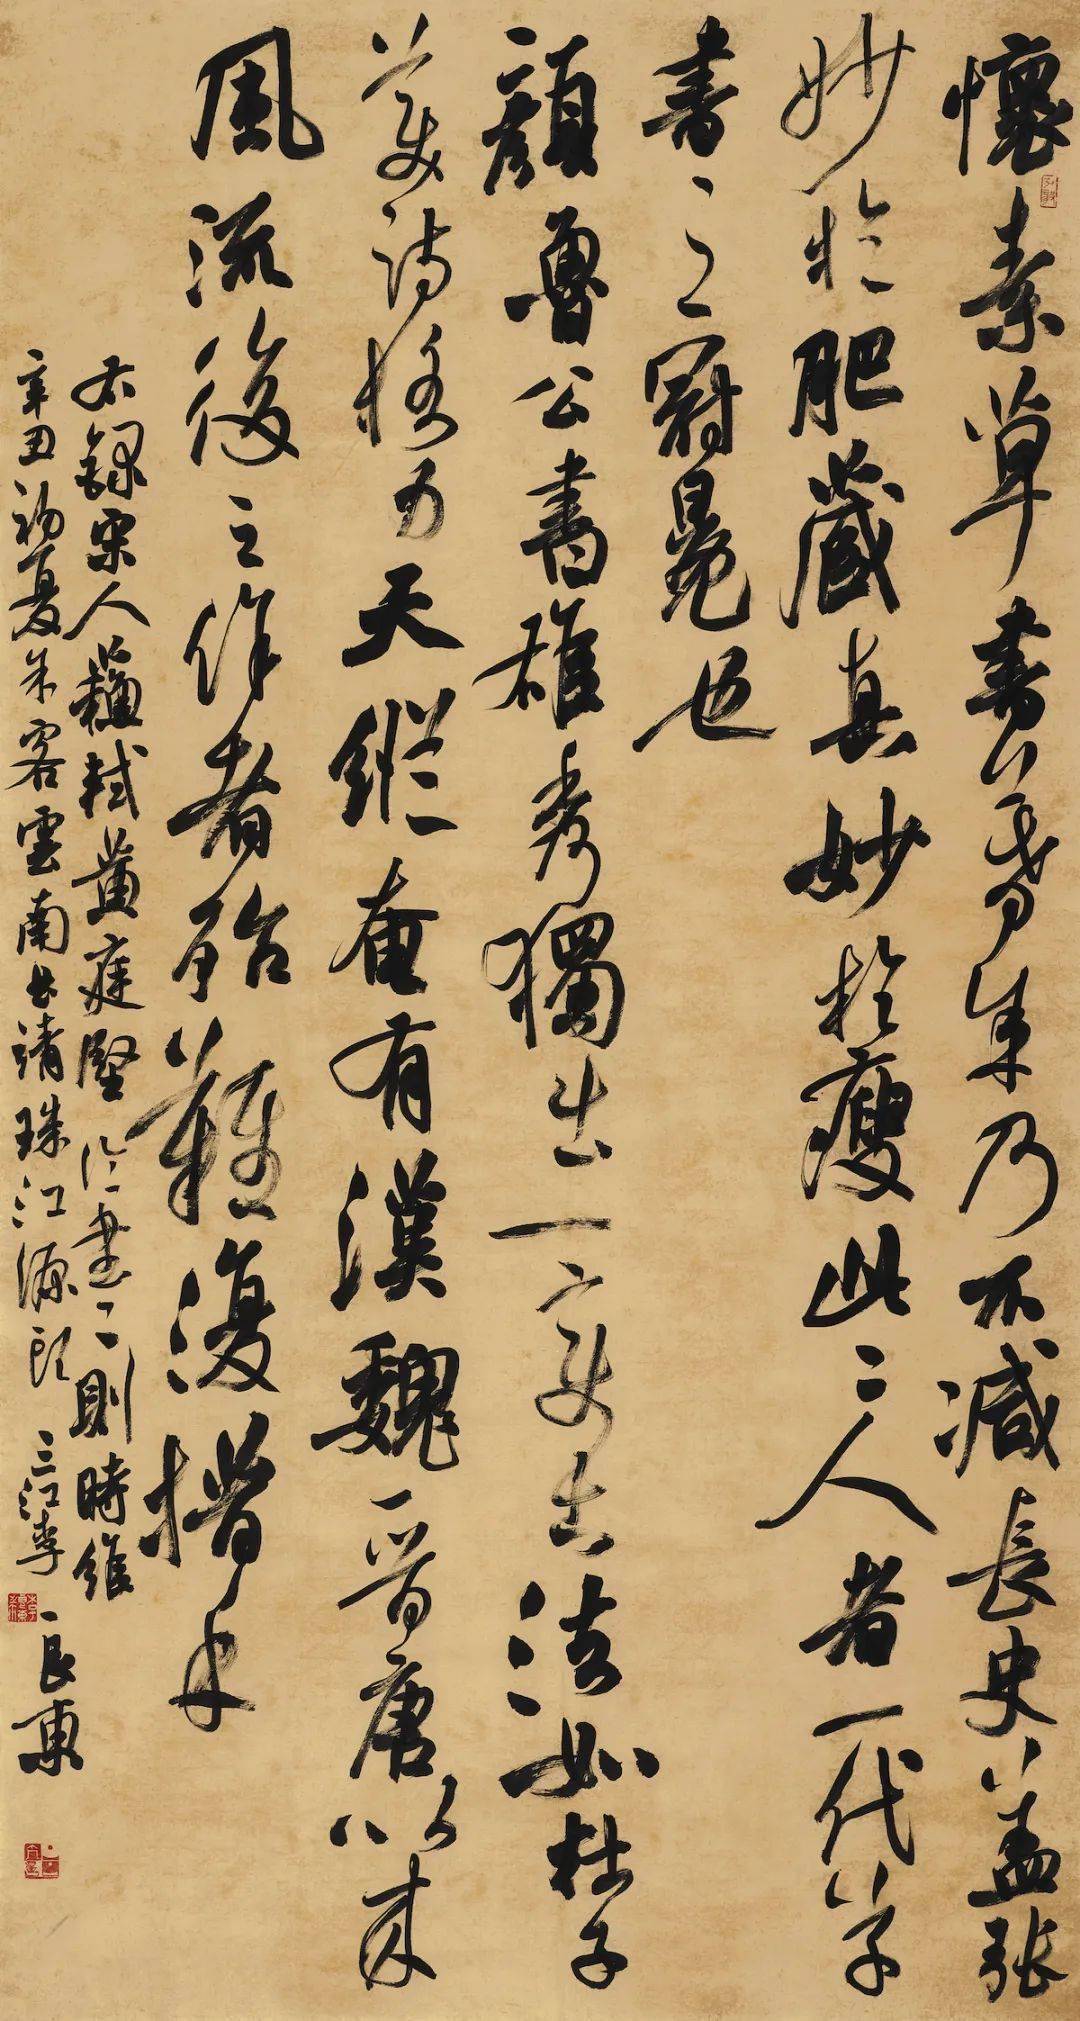 懷素草書暮年乃不減長史蓋張
妙於肥藏真妙於瘦此二人者一代草
書之冠冕也
顏魯公書雄秀獨出一變古法如杜子
美詩格力天縱奄有漢魏晉唐以來
風流後之作者殆難復措手
右錄宋人蘇軾黃庭堅論書二則時維
辛丑初夏客雲南曲靖珠江源頭三江李良東